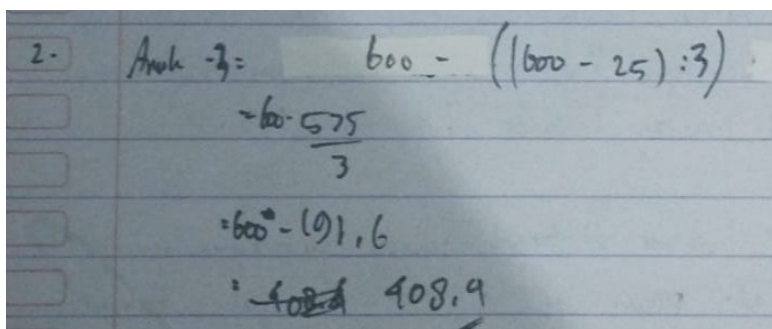 2. Anak -3 = 600 - ((600 - 25) : 3)
= 600 - 575
3
= 600 - 191,6
= 408,4